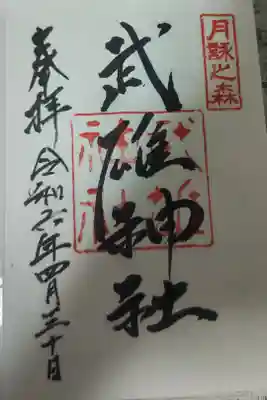 月詠之森
武雄神社
奉拝 令和六年四月三十日